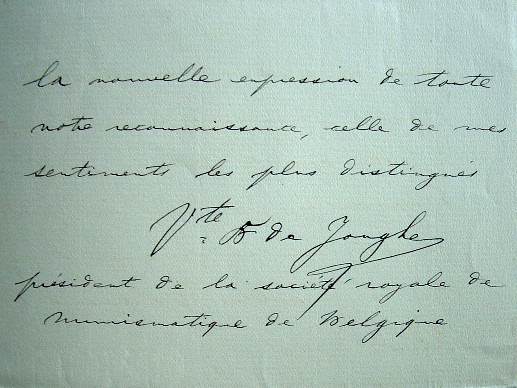 la nouvelle expression de toute
notre reconnaissance, celle de mes
sentiments les plus distingués
Vte B de Jonghe
président de la société royale de
Numismatique de Belgique